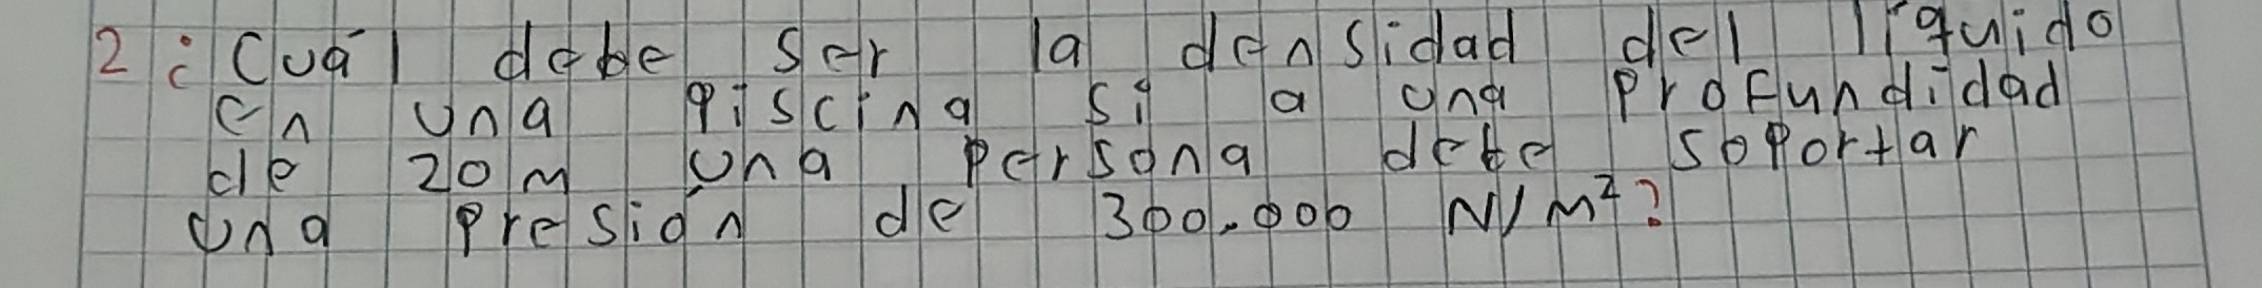 2 ¿Cuál debe ser la densidad del líquido
en una piscina si a una profundidad
de 20 m una persona debe soportar
una presión de 300.000 N/m²?